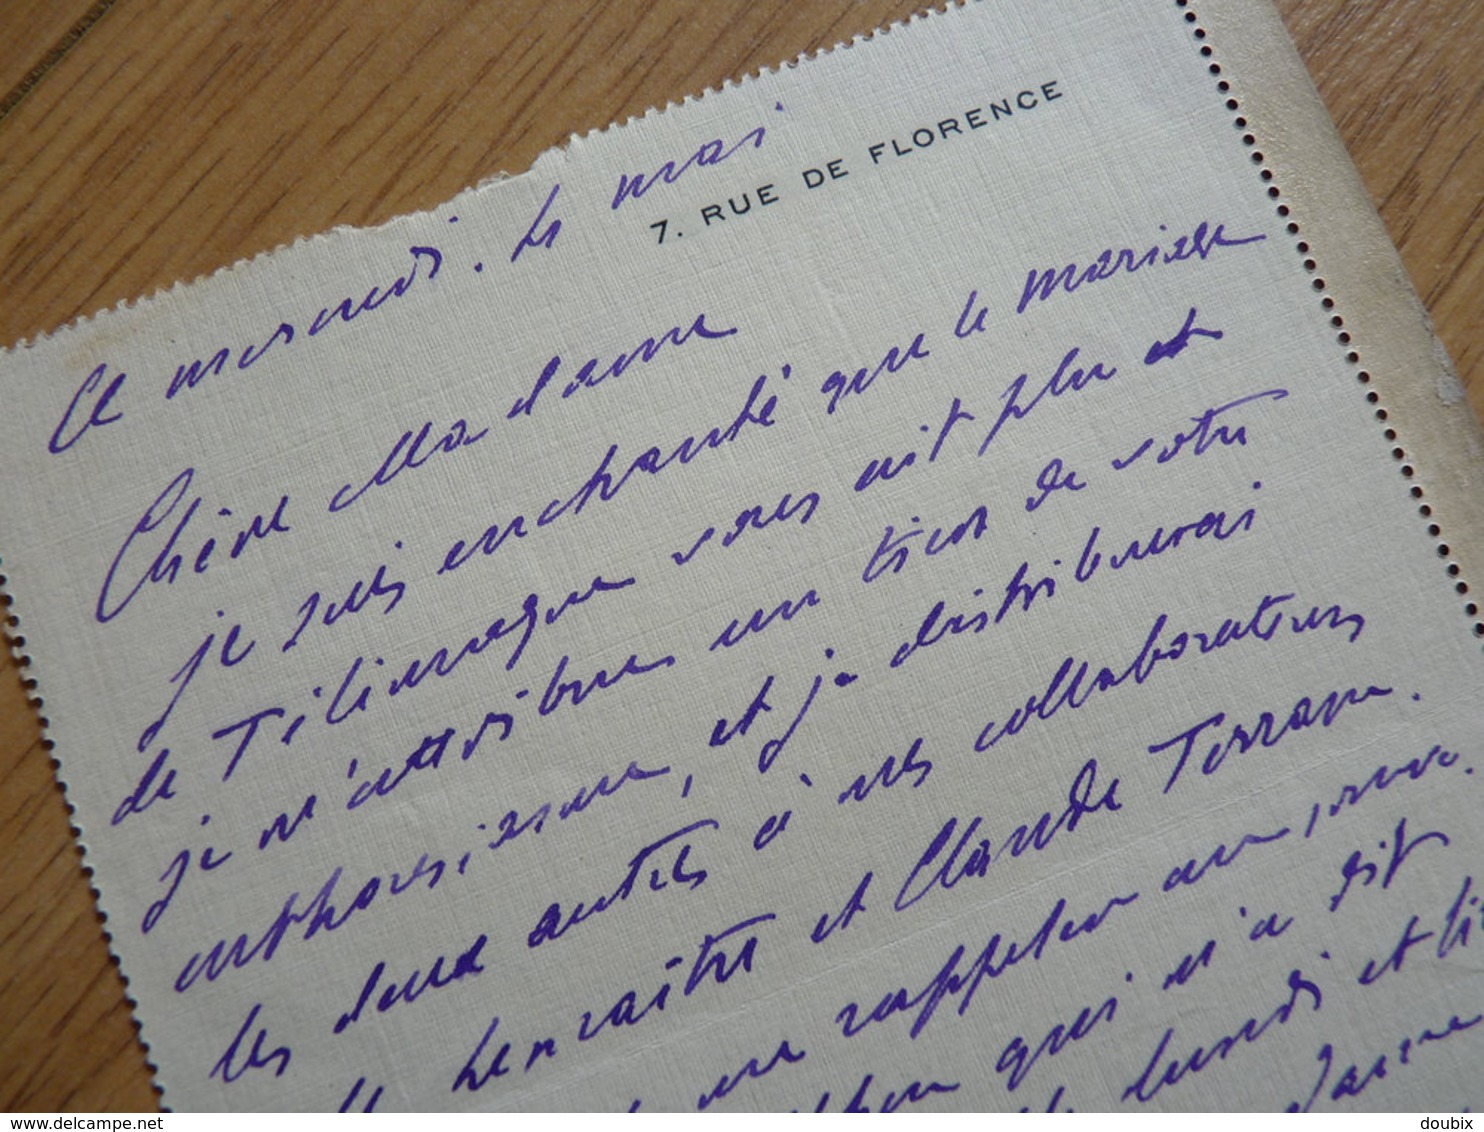 7. RUE DE FLORENCE
Ce mercredi. 4 mai
Chère Madame
je suis enchanté que le mariage
de Télémaque vous ait plu et
je m'attribue un tiers de votre
enthousiasme, et je distribuerai
les deux autres à mes collaborateurs
Lemaître et Claude Terrasse.
me rappeler au
qui m'a dit
lundi et
delcampe.net
doubix